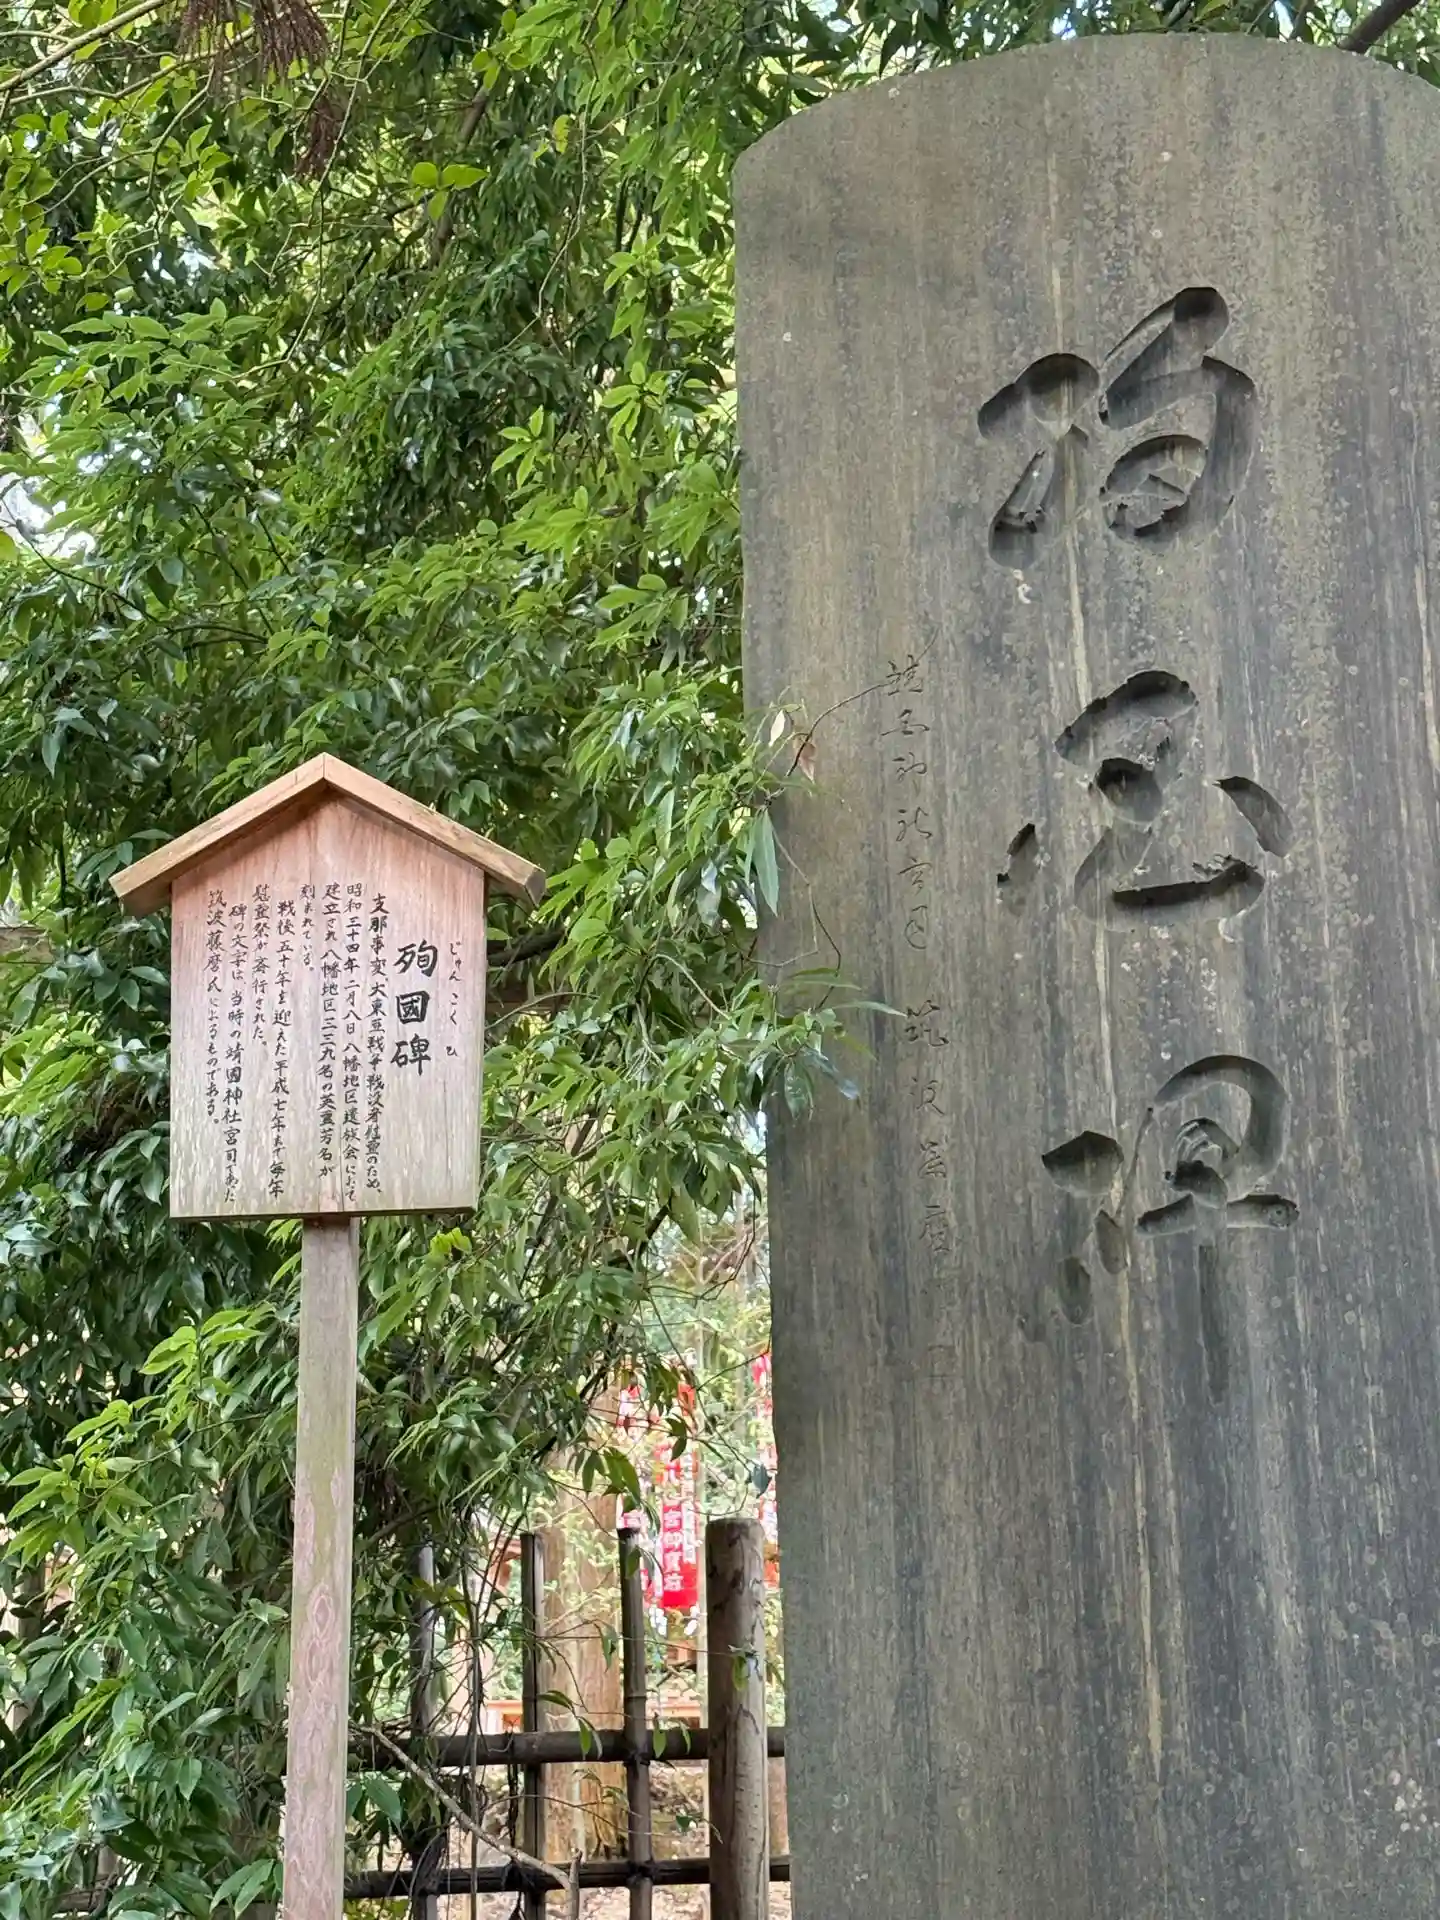 殉国碑
靖国神社宮司 筑波藤麿
じゅんこくひ
殉國碑
支那事変、大東亜戦争戦没者慰霊のため、
昭和三十四年二月八日八幡地区遺族会において
建立され八幡地区三三九名の英霊芳名が
刻まれている。
戦後五十年を迎えた平成七年まで毎年
慰霊祭が斎行された。
碑の文字は、当時の靖國神社宮司であった
筑波藤麿氏によるものである。
宮御寳前